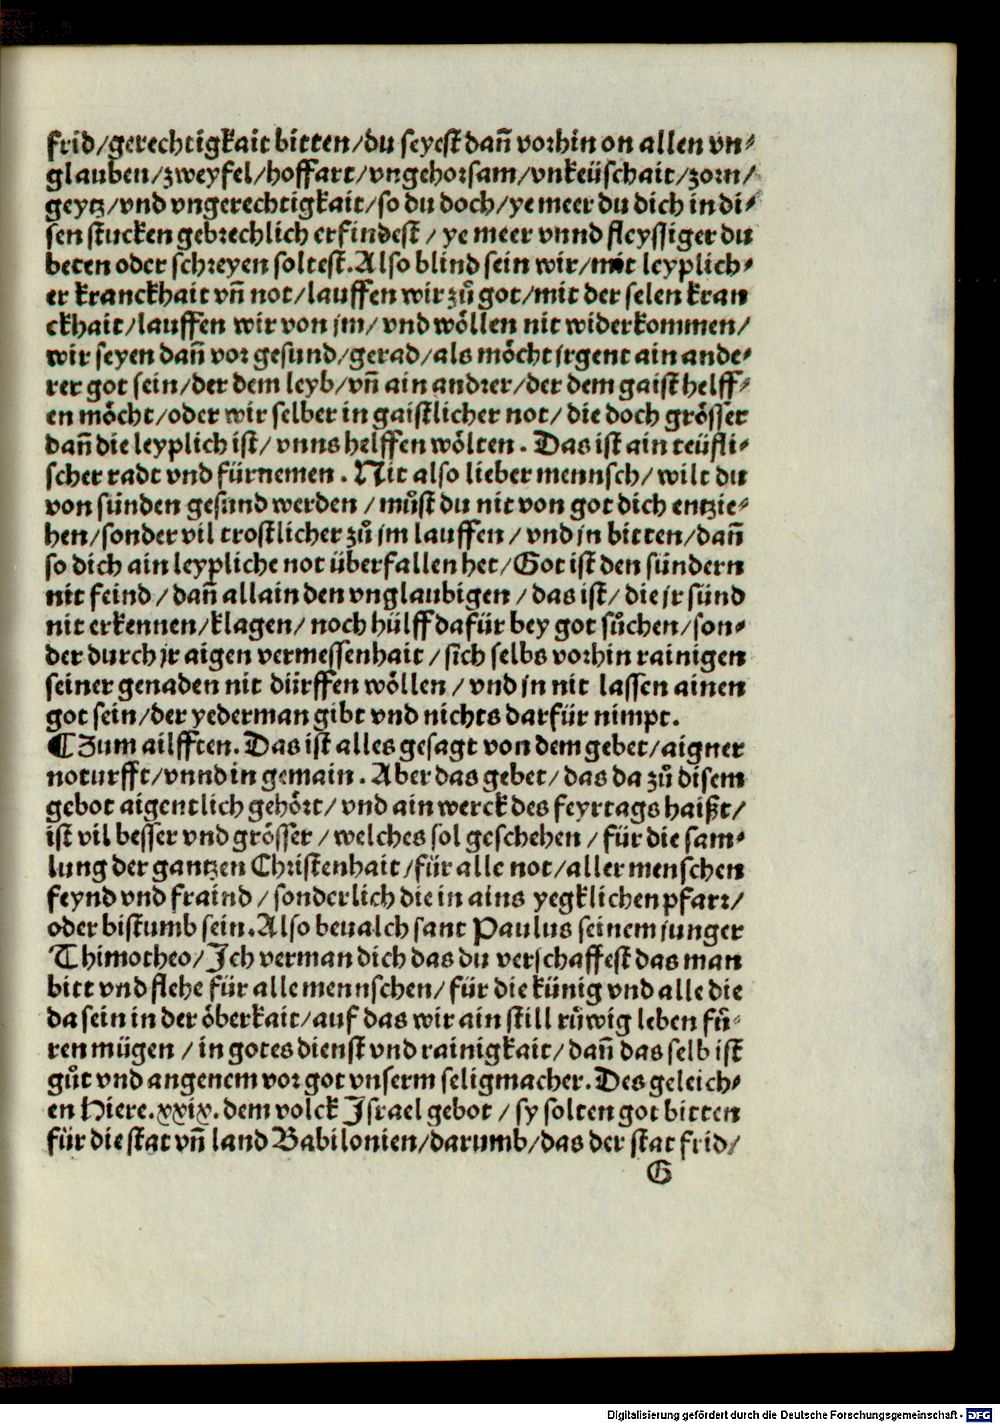 frid/gerechtigkait bitten/du seyest dañ vorhin on allen vn⸗
glauben/zweyfel/hoffart/vngehorsam/vnkeüschait/zorn/
geytz/vnd vngerechtigkait/so du doch/ye meer du dich in di⸗
sen stucken gebrechlich erfindest/ye meer vnnd fleyssiger du
beten oder schreyen soltest. Also blind sein wir/mit leyplich⸗
er kranckhait vñ not/lauffen wir zů got/mit der selen kran
ckhait/lauffen wir von jm/vnd wöllen nit widerkommen/
wir seyen dañ vor gesund/gerad/als möcht jrgent ain ande⸗
rer got sein/der dem leyb/vñ ain andrer/der dem gaist helff⸗
en möcht/oder wir selber in gaistlicher not/die doch grösser
dañ die leyplich ist/vnns helffen wölten. Das ist ain teüfli⸗
scher radt vnd fürnemen. Nit also lieber mennsch/wilt du
von sünden gesund werden/můst du nit von got dich entzie⸗
hen/sonder vil trostlicher zů jm lauffen/vnd jn bitten/dañ
so dich ain leypliche not überfallen het/Got ist den sündern
nit feind/dañ allain den vnglaubigen/das ist/die jr sünd
nit erkennen/klagen/noch hülff dafür bey got sůchen/son⸗
der durch jr aigen vermessenhait/sich selbs vorhin rainigen
seiner genaden nit dürffen wöllen/vnd jn nit lassen ainen
got sein/der yederman gibt vnd nichts darfür nimpt.
¶Zum ailfften. Das ist alles gesagt von dem gebet/aigner
noturfft/vnnd in gemain. Aber das gebet/das da zů disem
gebot aigentlich gehört/vnd ain werck des feyrtags haißt/
ist vil besser vnd grösser/welches sol geschehen/für die sam⸗
lung der gantzen Christenhait/für alle not/aller menschen
feynd vnd fraind/sonderlich die in ains yegklichen pfarr/
oder bistumb sein. Also beualch sant Paulus seinem junger
Thimotheo/Ich verman dich das du verschaffest das man
bitt vnd flehe für alle mennschen/für die künig vnd alle die
da sein in der öberkait/auf das wir ain still růwig leben fů⸗
ren mügen/in gotes dienst vnd rainigkait/dañ das selb ist
gůt vnd angenem vor got vnserm seligmacher. Des geleich⸗
en Hiere.xxix. dem volck Israel gebot/sy solten got bitten
für die stat vñ land Babilonien/darumb/das der stat frid/
G
Digitalisierung gefördert durch die Deutsche Forschungsgemeinschaft - DFG